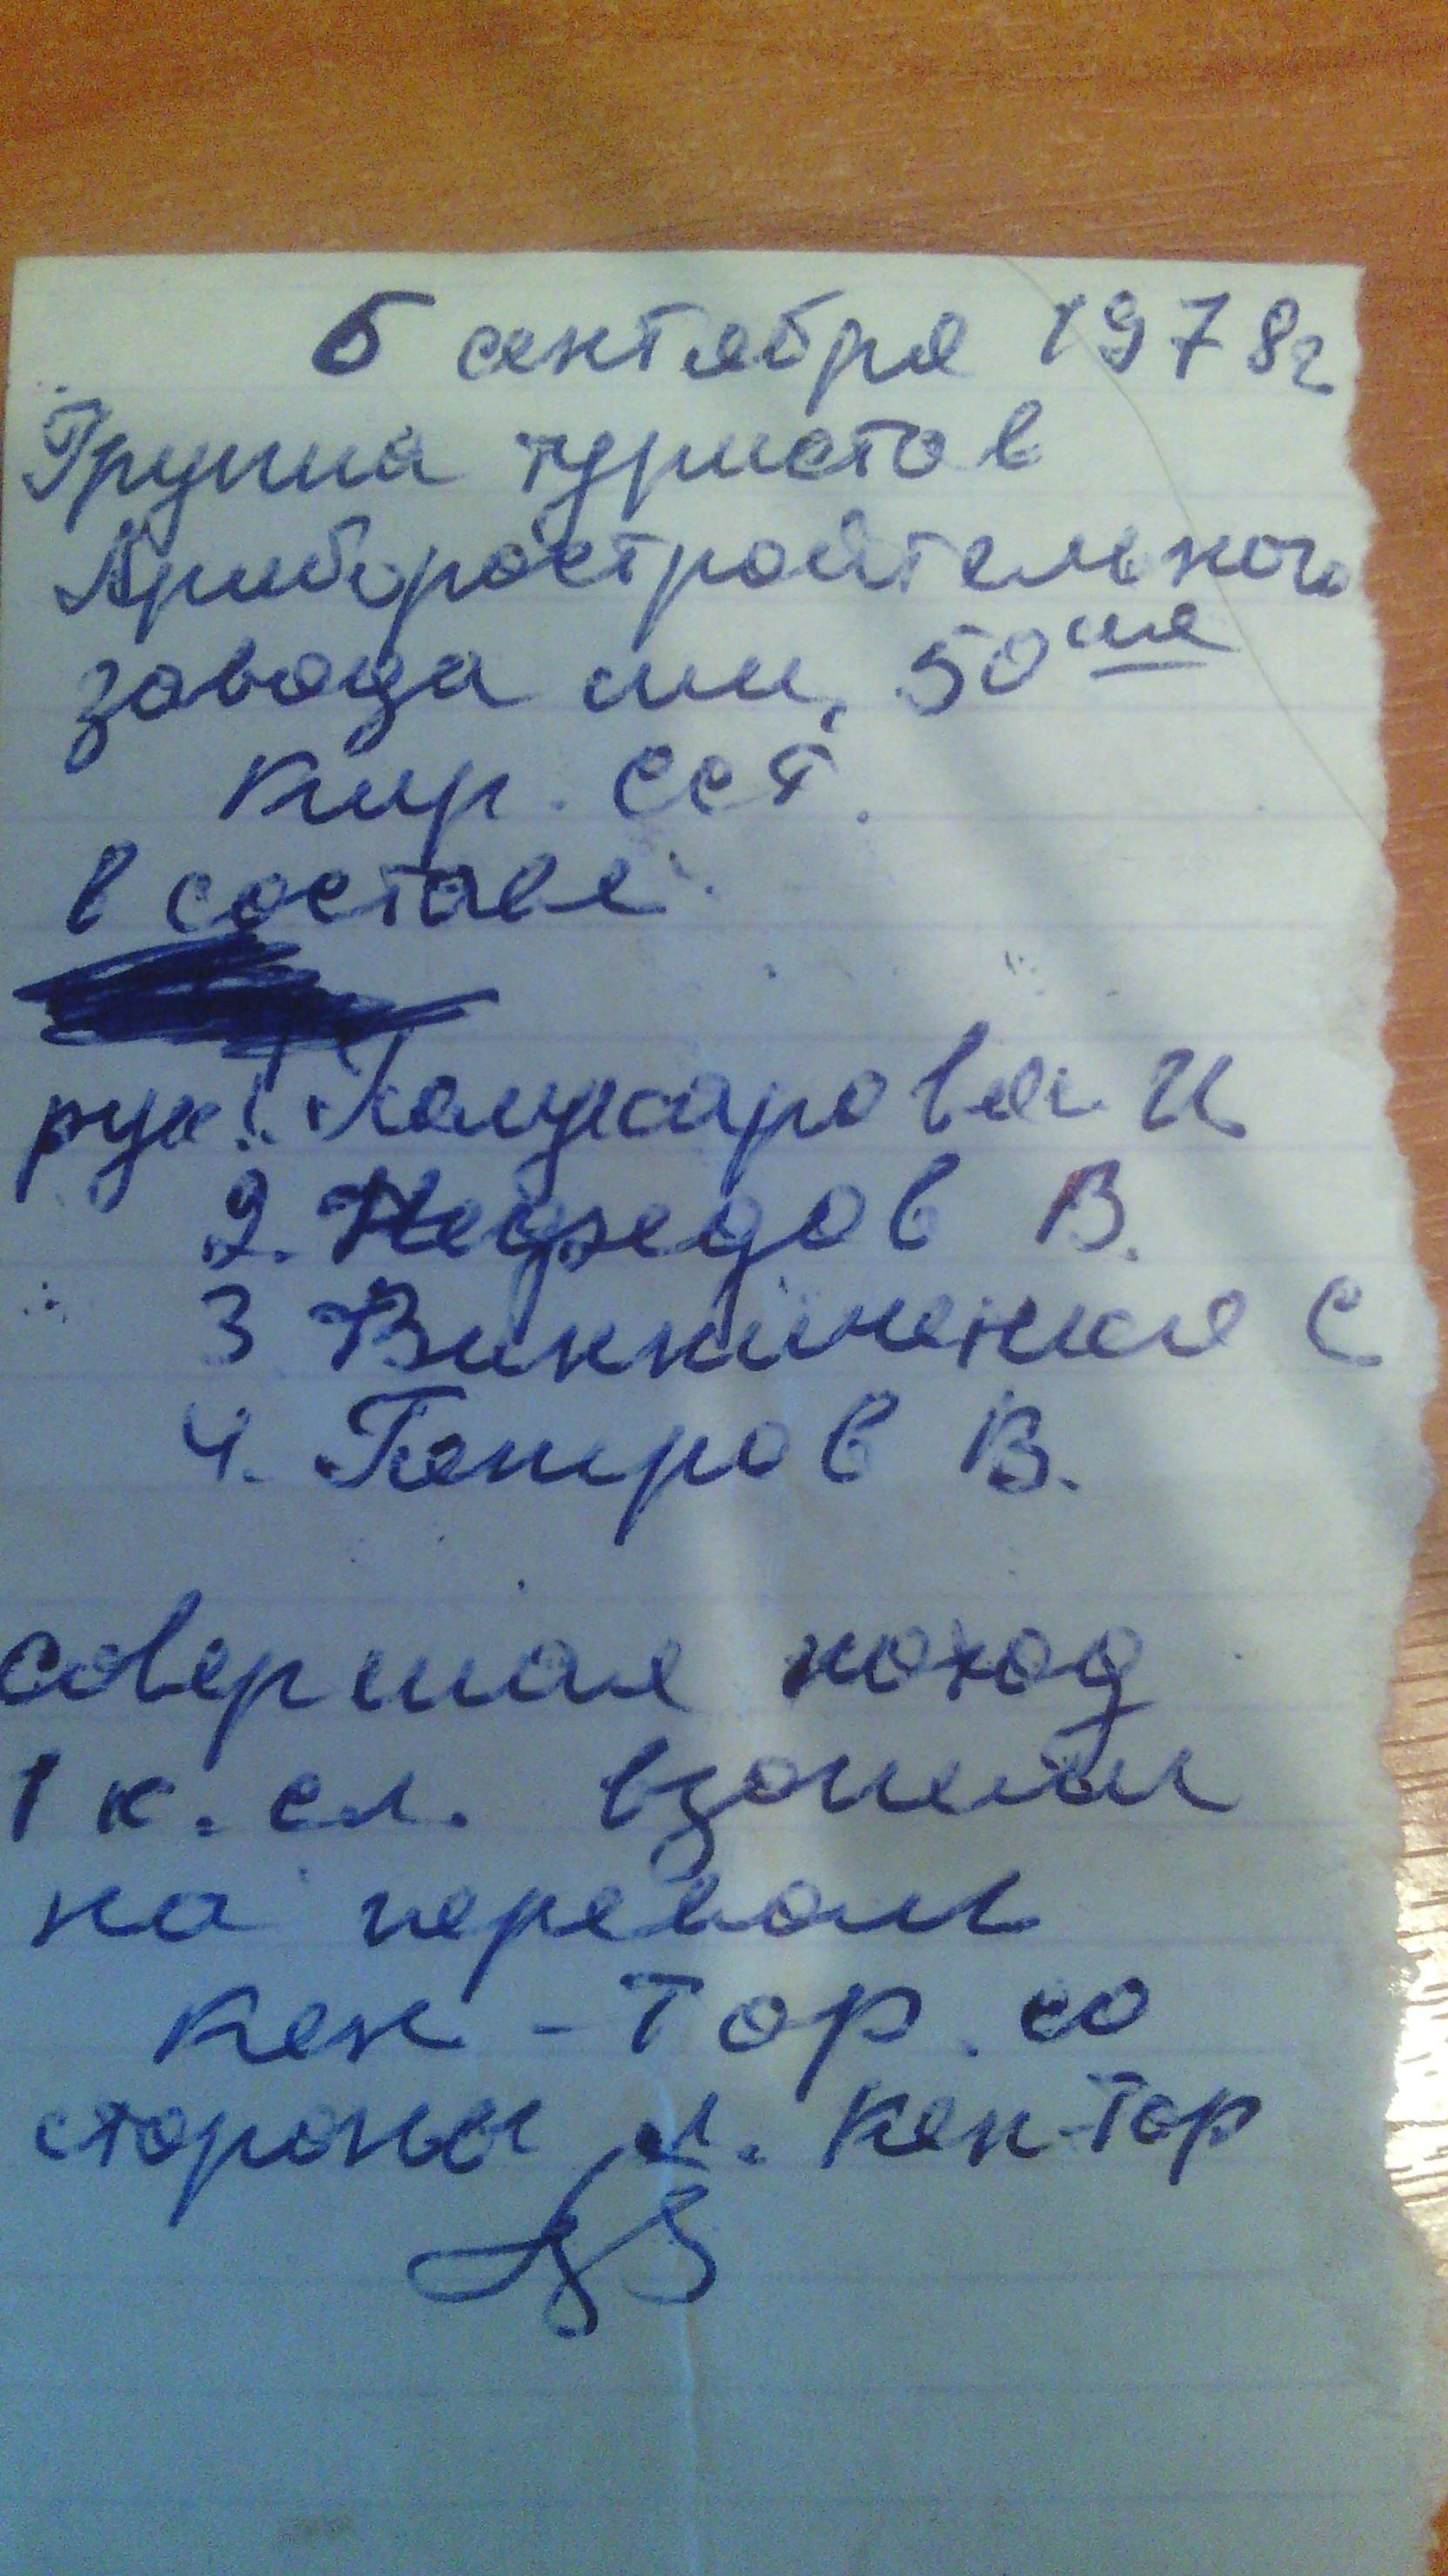 5 сентября 1978г
Группа туристов
Приборостроительного
завода им. 50 ия
Кир. ССР.
в составе:
рук. 1. И
2. В.
3 С
4. Петров В.
совершая поход
1 к. сл. взошли
на перевал
Кен-Тор со
стороны л. Кен-Тор